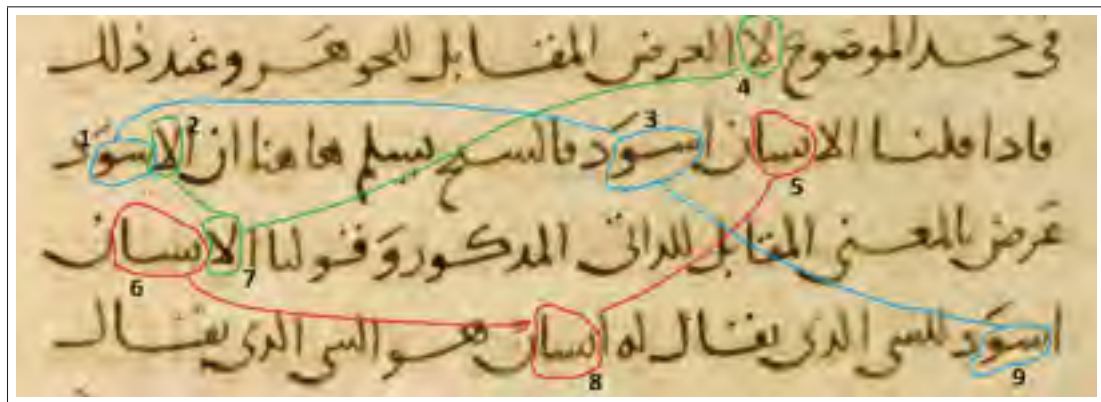 في حد الموضوع لا العرض المقابل للجوهر وعند ذلك
4
1 2 3
فاذا قلنا الانسان اسود فالشيخ يسلم هاهنا ان الاسود
5
عرض بالمعنى المقابل للذاتي المذكور وقولنا الانسان
6 7
اسود للشي الذي يقال له انسان هو الشي الذي يقال
8 9